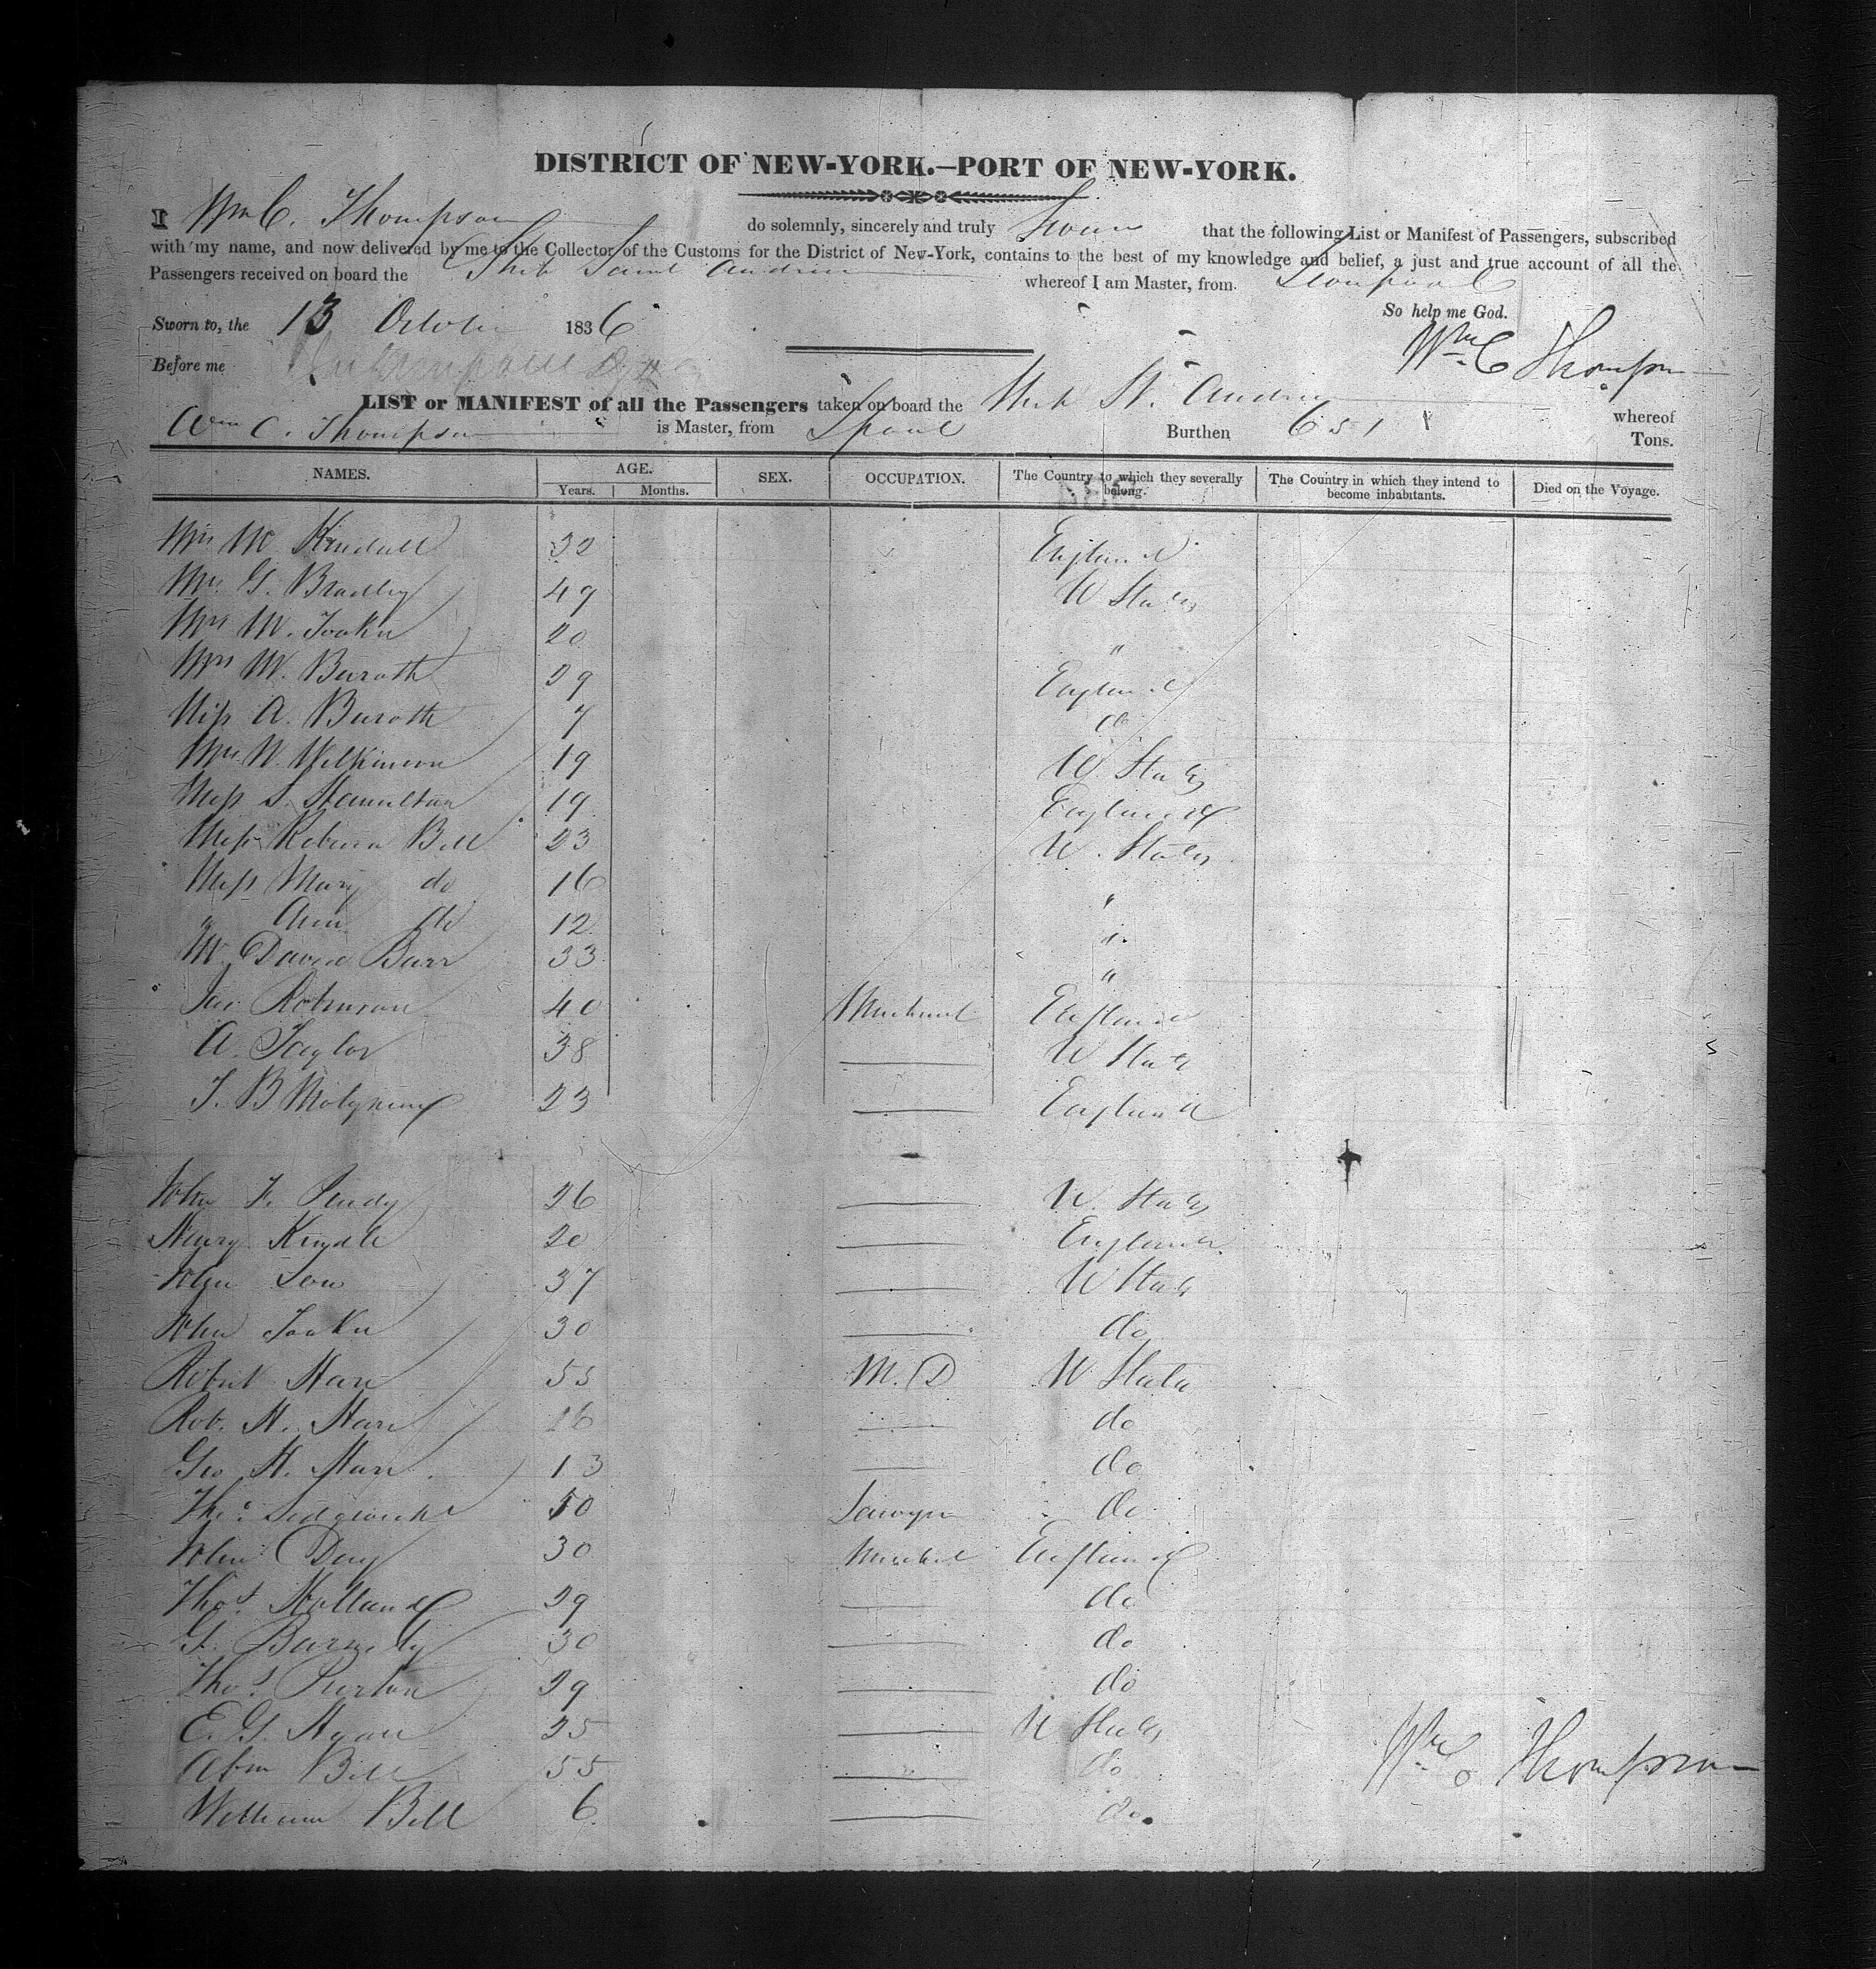 DISTRICT OF NEW-YORK.—PORT OF NEW-YORK.
I Wm C. Thompson do solemnly, sincerely and truly Swear that the following List or Manifest of Passengers, subscribed
with my name, and now delivered by me to the Collector of the Customs for the District of New-York, contains to the best of my knowledge and belief, a just and true account of all the
Passengers received on board the Ship Saint Andrew whereof I am Master, from Liverpool
So help me God.
Sworn to, the 13 October 1836
Wm C Thompson
Before me
LIST or MANIFEST of all the Passengers taken on board the Ship St. Andrew whereof
Wm C. Thompson is Master, from Lpool Burthen 651 Tons.
NAMES. AGE. SEX. OCCUPATION. The Country to which they severally belong. The Country in which they intend to become inhabitants. Died on the Voyage.
Years. Months.
Mrs M Kindall 32 England
Mrs G. Bradley 49 U States
Mrs M. Tooker 20 "
Mrs M. 29 England
Miss A. 7 do
Mrs W. Wilkinson 19 U. States
Miss S. Hamilton 19 England
Miss Rebecca Bell 23 U. States
Miss Mary do 16 "
" Ann do 12 "
M David Barr 33 "
Jas Robinson 40 Merchant England
A. Taylor 38 — U States
T. B Molyneux 23 — England
John F. Purdy 26 — U. States
Henry Kindle 20 — England
John 37 — U States
John Tooker 30 — do
Robert Hare 55 M. D U States
Rob. H. Hare 16 — do
Geo H. Hare 13 — do
Theo Sedgwick 50 Lawyer do
John Day 30 Merchant England
Thos. Holland 29 — do
G. 30 — do
Thos. 29 — do
E. G. 25 — U States
Abm Bell 55 — do
William Bell 6 — do
Wm C Thompson